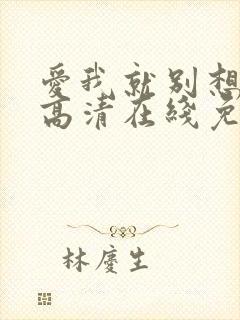 愛我就別想
高清在綫免
林慶生